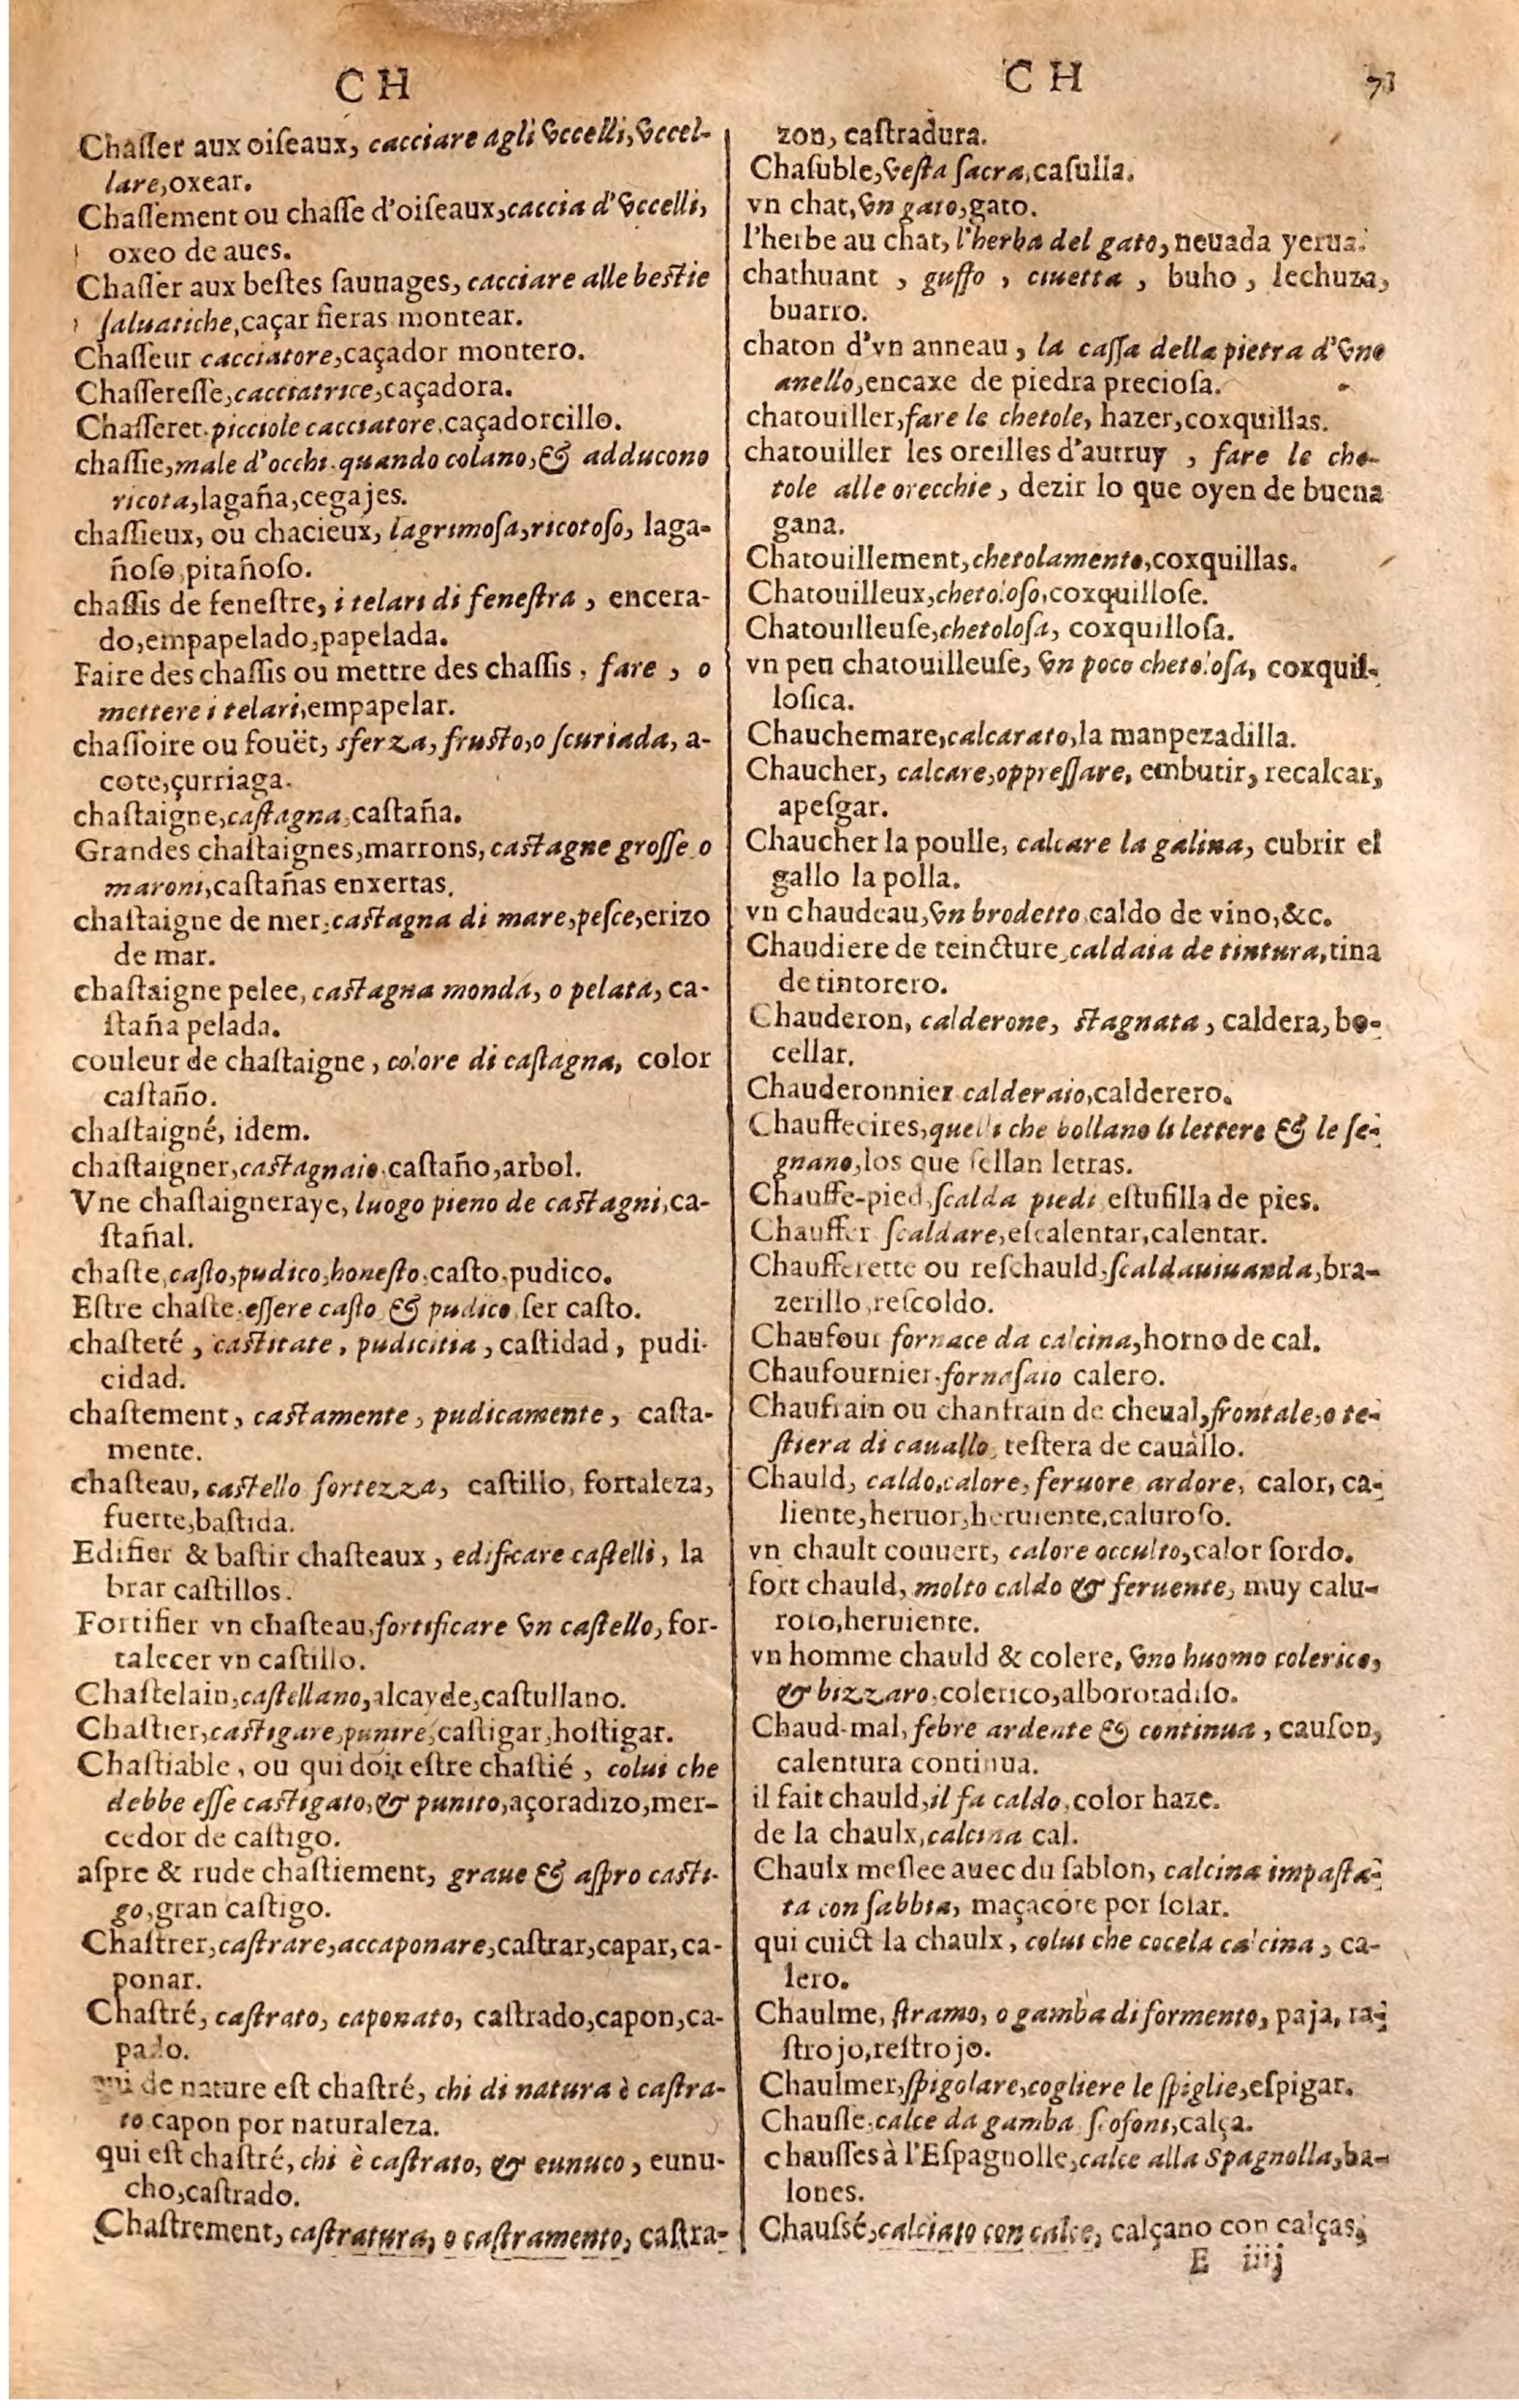 CH
Chasser aux oiſeaux, cacciare agli vccelli, vccel-
lare, oxear.
Chaſſement ou chaſſe d'oiſeaux, caccia d'vccelli,
oxeo de aues.
Chaſſer aux beſtes ſauuages, cacciare alle beſtie
ſaluatiche, caçar fieras montear.
Chaſſeur cacciatore, caçador montero.
Chaſſereſſe, cacciatrice, caçadora.
Chaſſeret. picciole cacciatore, caçadorcillo.
chaſſie, male d'occhi. quando colano, & adducono
ricota, lagaña, cegajes.
chaſſieux, ou chacieux, lagrimoſa, ricotoſo, laga-
ñoſo, pitañoſo.
chaſſis de feneſtre, i telari di feneſtra, encera-
do, empapelado, papelada.
Faire des chaſſis ou mettre des chaſſis, fare, o
mettere i telari, empapelar.
chaſſoire ou fouët, sferza, fruſto, o ſcuriada, a-
cote, çurriaga.
chaſtaigne, caſtagna, caſtaña.
Grandes chaſtaignes, marrons, caſtagne groſſe o
maroni, caſtañas enxertas.
chaſtaigne de mer, caſtagna di mare, peſce, erizo
de mar.
chaſtaigne pelee, caſtagna monda, o pelata, ca-
ſtaña pelada.
couleur de chaſtaigne, colore di caſtagna, color
caſtaño.
chaſtaigné, idem.
chaſtaigner, caſtagnaio caſtaño, arbol.
Vne chaſtaigneraye, luogo pieno de caſtagni, ca-
ſtañal.
chaſte, caſto, pudico, honeſto, caſto, pudico.
Eſtre chaſte, eſſere caſto & pudico ſer caſto.
chaſteté, caſtitate, pudicitia, caſtidad, pudi-
cidad.
chaſtement, caſtamente, pudicamente, caſta-
mente.
chaſteau, caſtello fortezza, caſtillo, fortaleza,
fuerte, baſtida.
Edifier & baſtir chaſteaux, edificare caſtelli, la
brar caſtillos.
Fortifier vn chaſteau, fortificare vn caſtello, for-
talecer vn caſtillo.
Chaſtelain, caſtellano, alcayde, caſtullano.
Chaſtier, caſtigare, punire, caſtigar, hoſtigar.
Chaſtiable, ou qui doit eſtre chaſtié, colui che
debbe eſſe caſtigato, & punito, açoradizo, mer-
cedor de caſtigo.
aſpre & rude chaſtiement, graue & aſpro caſti-
go, gran caſtigo.
Chaſtrer, caſtrare, accaponare, caſtrar, capar, ca-
ponar.
Chaſtré, caſtrato, caponato, caſtrado, capon, ca-
pado.
qui de nature eſt chaſtré, chi di natura è caſtra-
to capon por naturaleza.
qui eſt chaſtré, chi è caſtrato, & eunuco, eunu-
cho, caſtrado.
Chaſtrement, caſtratura, o caſtramento, caſtra-
CH 71
zon, caſtradura.
Chaſuble, veſta ſacra, caſulla.
vn chat, vn gato, gato.
l'herbe au chat, l'herba del gato, neuada yerua.
chathuant, guffo, ciuetta, buho, lechuza,
buarro.
chaton d'vn anneau, la caſſa della pietra d'vno
anello, encaxe de piedra precioſa.
chatouiller, fare le chetole, hazer, coxquillas.
chatouiller les oreilles d'autruy, fare le che-
tole alle orecchie, dezir lo que oyen de buena
gana.
Chatouillement, chetolamento, coxquillas.
Chatouilleux, chetoloſo, coxquilloſe.
Chatouilleuſe, chetoloſa, coxquilloſa.
vn peu chatouilleuſe, vn poco chetoloſa, coxquil-
loſica.
Chauchemare, calcarato, la manpezadilla.
Chaucher, calcare, oppreſſare, embutir, recalcar,
apeſgar.
Chaucher la poulle, calcare la galina, cubrir el
gallo la polla.
vn chaudeau, vn brodetto caldo de vino, &c.
Chaudiere de teincture, caldaia de tintura, tina
de tintorero.
Chauderon, calderone, ſtagnata, caldera, bo-
cellar.
Chauderonnier calderaio, calderero.
Chauffecires, quelli che bollano li lettere & le ſe-
gnano, los que ſellan letras.
Chauffe-pied, ſcalda piedi eſtufilla de pies.
Chauffer ſcaldare, eſcalentar, calentar.
Chaufferette ou reſchauld, ſcaldauiuanda, bra-
zerillo, reſcoldo.
Chaufour fornace da calcina, horno de cal.
Chaufournier. fornaſaio calero.
Chaufrain ou chanfrain de cheual, frontale, o te-
ſtiera di cauallo, teſtera de cauallo.
Chauld, caldo, calore, feruore ardore, calor, ca-
liente, heruor, heruiente, caluroſo.
vn chault couuert, calore occulto, calor ſordo.
fort chauld, molto caldo & feruente, muy calu-
roſo, heruiente.
vn homme chauld & colere, vno huomo colerico,
& bizzaro, colerico, alborotadiſo.
Chaud-mal, febre ardente & continua, cauſon,
calentura continua.
il fait chauld, il fa caldo, color haze.
de la chaulx, calcina cal.
Chaulx meſlee auec du ſablon, calcina impaſta-
ta con ſabbia, maçacote por ſolar.
qui cuict la chaulx, colui che coce la calcina, ca-
lero.
Chaulme, ſtramo, o gamba di formento, paja, ra-
ſtrojo, reſtrojo.
Chaulmer, ſpigolare, cogliere le ſpiglie, eſpigar.
Chauſſe, calce da gamba ſcofoni, calça.
chauſſes à l'Eſpagnolle, calce alla Spagnolla, ba-
lones.
Chauſsé, calciato con calce, calçano con calças,
E iiij